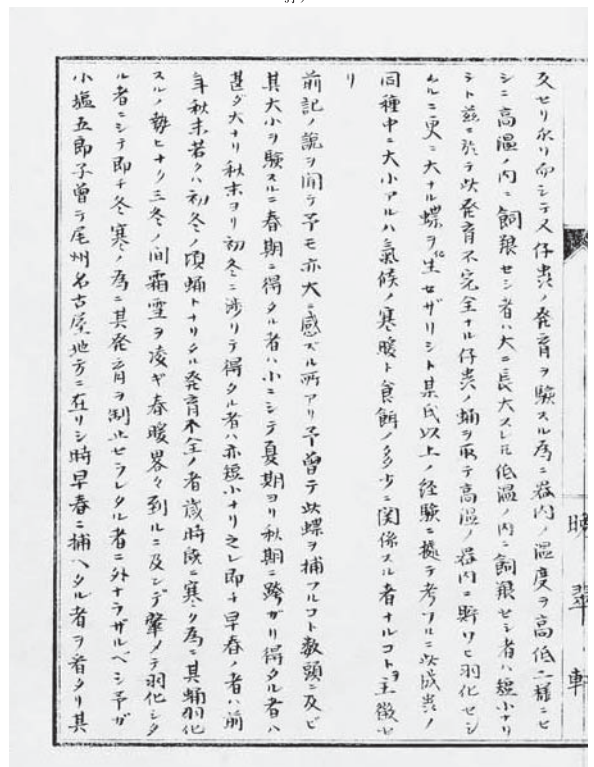 又セリ於リ而シテ又仔虫ノ発育ヲ験スル為ニ器内ノ温度ヲ高低二種ニセ
シニ高温ノ内ニ飼養セシ者ハ大ニ長大スレ𪜈低温ノ内ニ飼養セシ者ハ短小ナリ
テト茲ニ於テ此発育不完全ナル仔虫ノ蛹ヲ取テ高温ノ器内ニ野ワヒ羽化セシ
ムルニ更ニ大ナル蝶ヲ化生セザリシト某氏以上ノ経験ニ據テ考フルニ此成虫ノ
同種中ニ大小アルハ気候ノ寒暖ト食餌ノ多少ニ関係スル者ナルコトヲ主徴セ
リ
前記ノ説ヲ聞テ予モ亦大ニ感ズル所アリ予曾テ此蝶ヲ捕フルコト数頭ニ及ビ
其大小ヲ験スルニ春期ニ得タル者ハ小ニシテ夏期ヨリ秋期ニ跨ガリ得タル者ハ
甚ダ大ナリ秋末ヨリ初冬ニ渉リテ得タル者ハ亦短小ナリ之レ即チ早春ノ者ハ前
年秋末若クハ初冬ノ頃蛹トナリタル発育不全ノ者歳時既ニ寒ク為ニ其蛹羽化
スルノ勢ヒナク三冬ノ間霜雪ヲ凌ギ春暖畧々到ルニ及ンデ肇メテ羽化シタ
ル者ニシテ即チ冬寒ノ為ニ其発育ヲ制止セラレタル者ニ外ナラザルベシ予ガ
小塩五郎子曾テ尾州名古屋地方ニ在リシ時早春ニ捕ヘタル者ヲ者タリ其
晩翠軒